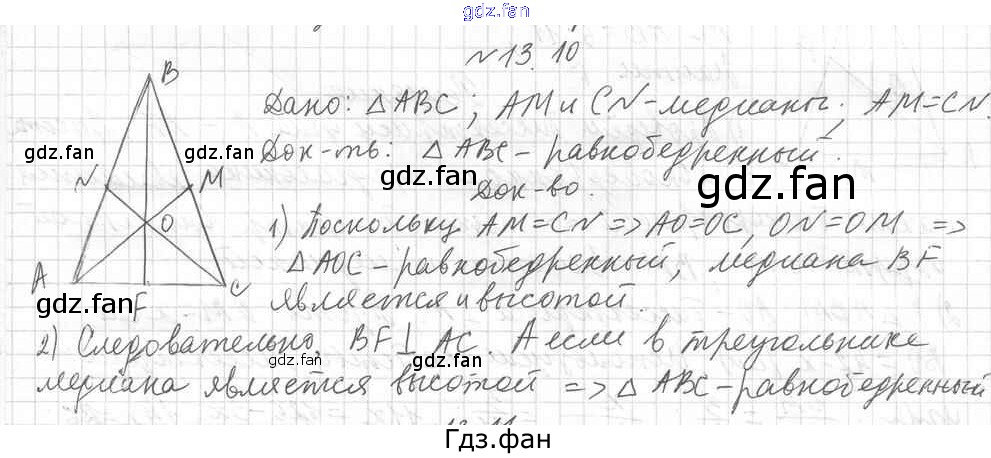 gdz.fan
№13.10
B
Дано: △ABC; AM и CN-медианы; AM=CN.
gdz.fan gdz.fan
Док-ть: △ABC-равнобедренный.
gdz.fan gdz.fan
N M Док-во.
O 1) Поскольку AM=CN => AO=OC, ON=OM =>
△AOC-равнобедренный, медиана BF
A C
gdz.fan F является и высотой.
2) Следовательно, BF⊥AC. А если в треугольнике
gdz.fan gdz.fan
медиана является высотой => △ABC-равнобедренный
13.11
Гдз.фан